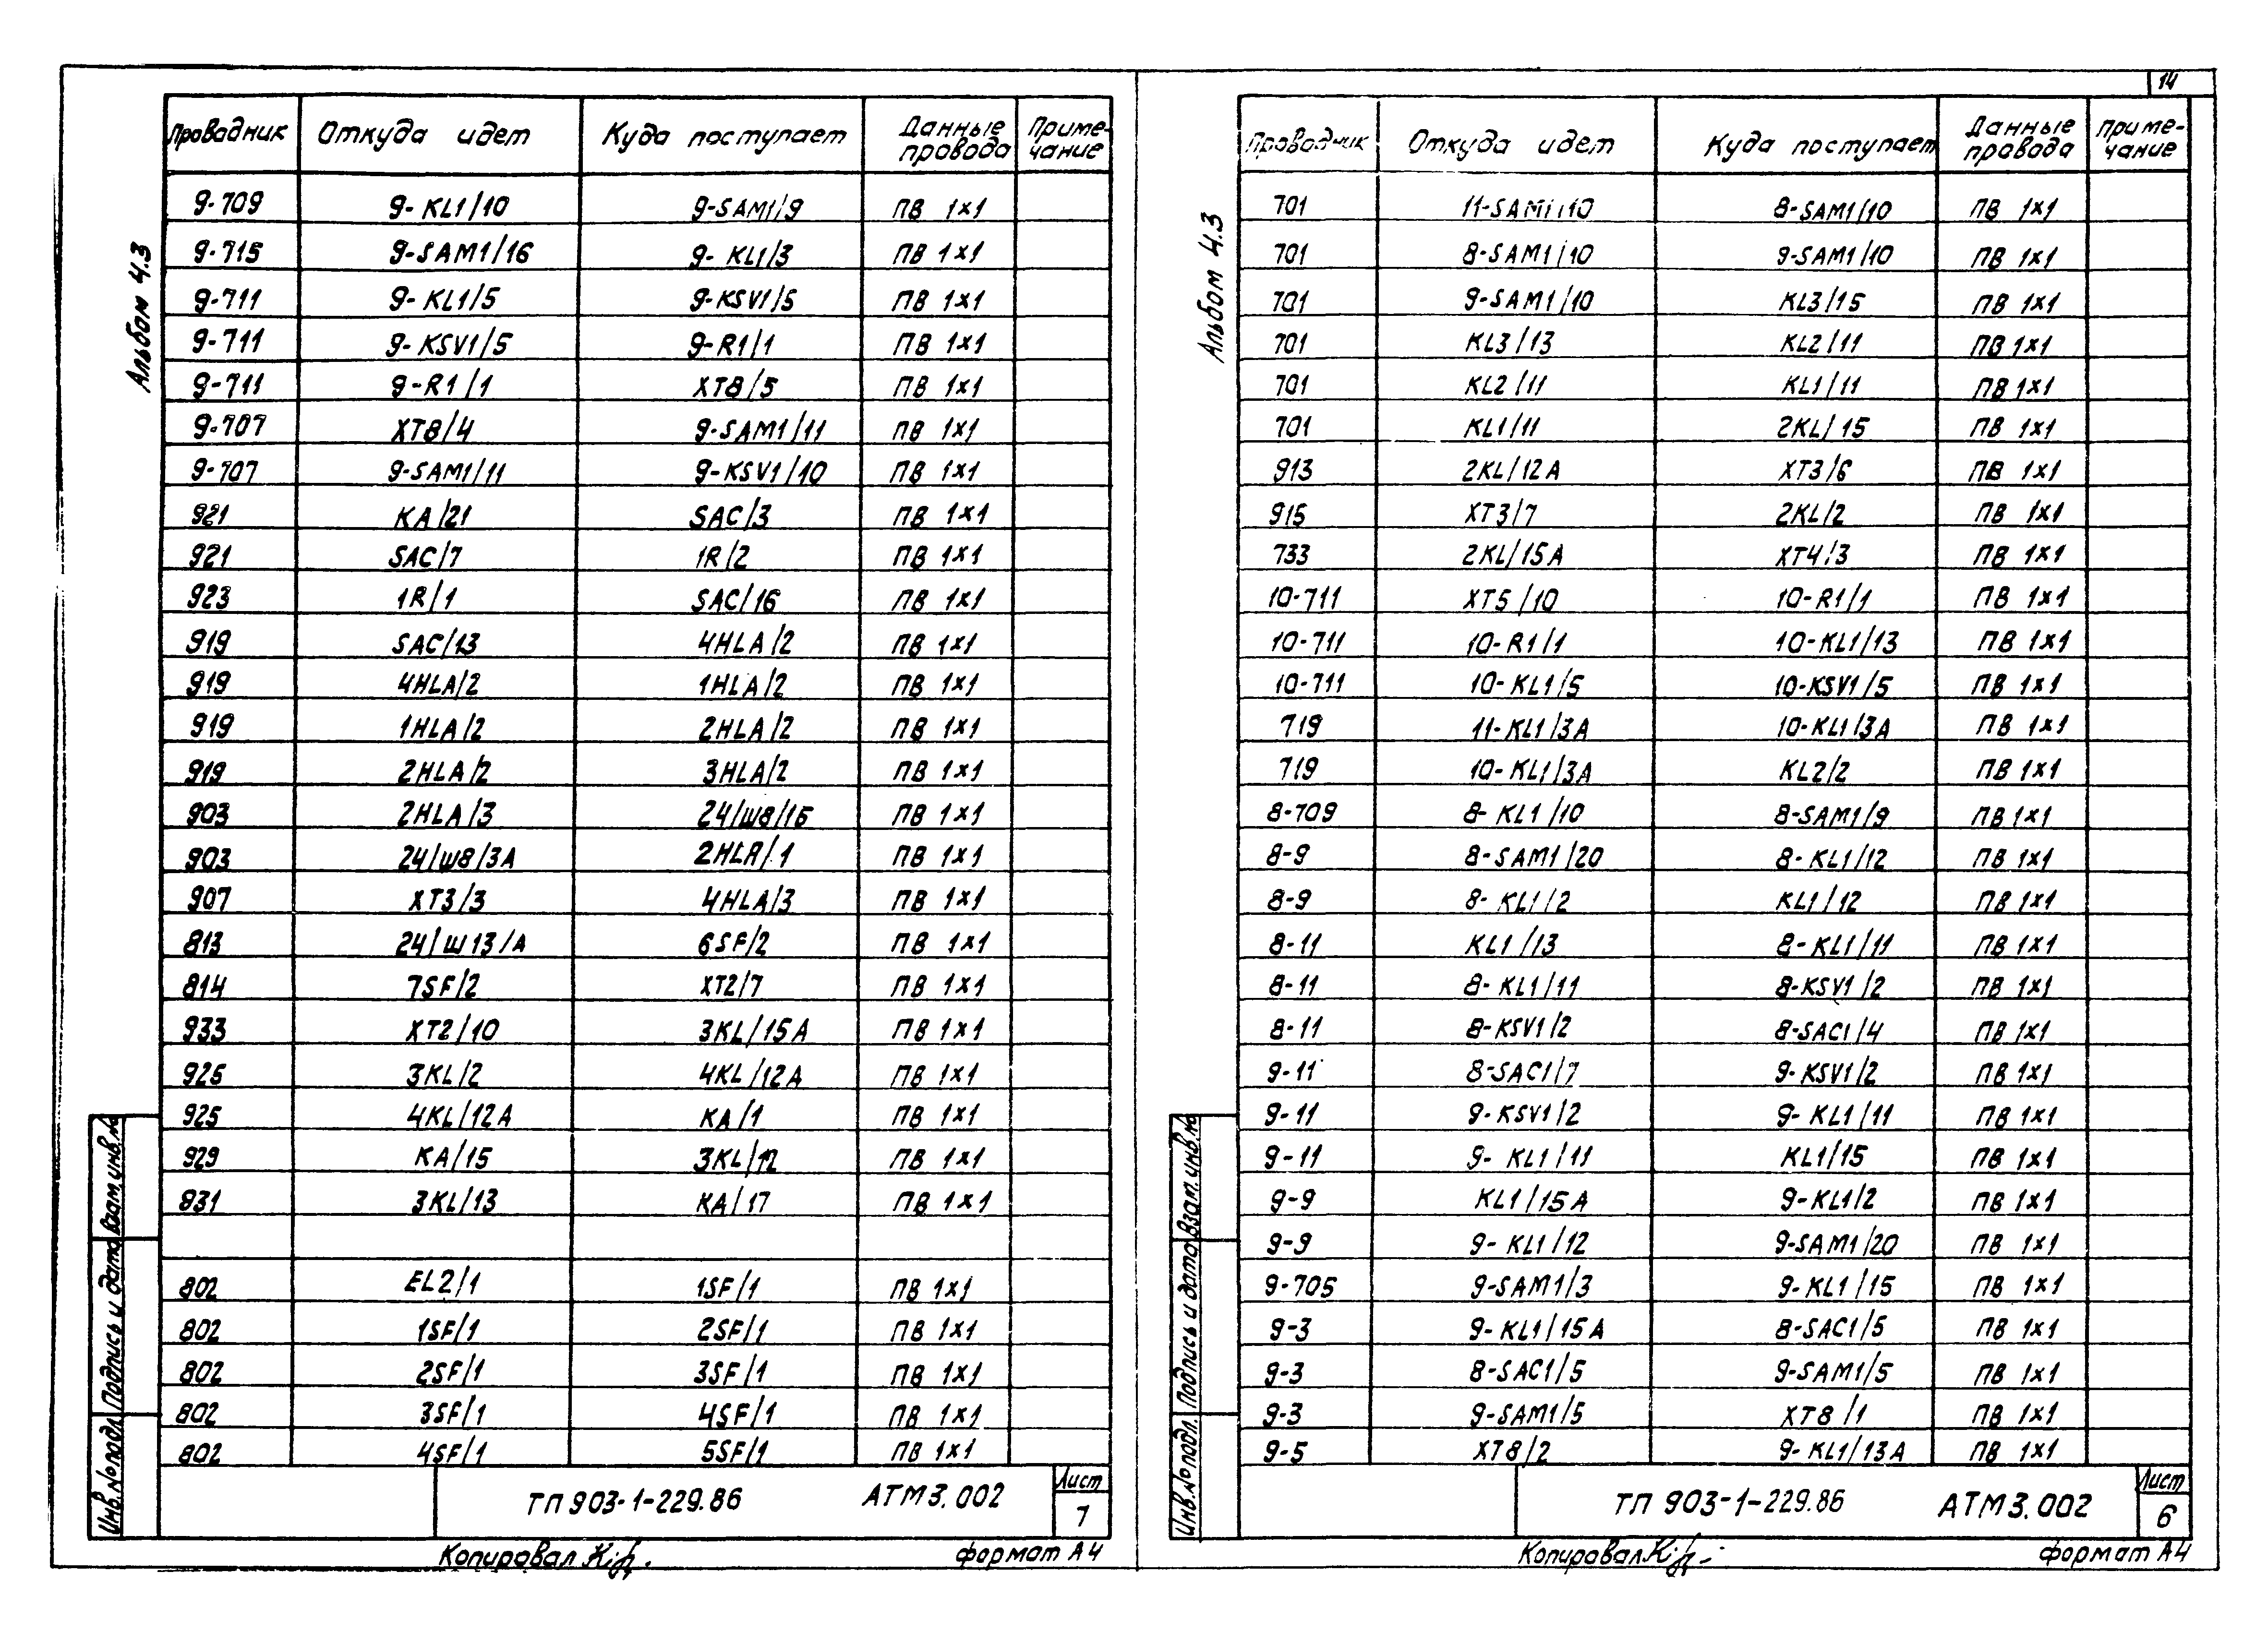 14
Альбом 4.3
Проводник Откуда идет Куда поступает Данные провода Приме-чание
9-709 9-KL1/10 9-SAM1/9 ПВ 1×1
9-715 9-SAM1/16 9-KL1/3 ПВ 1×1
9-711 9-KL1/5 9-KSV1/5 ПВ 1×1
9-711 9-KSV1/5 9-R1/1 ПВ 1×1
9-711 9-R1/1 XT8/5 ПВ 1×1
9-707 XT8/4 9-SAM1/11 ПВ 1×1
9-707 9-SAM1/11 9-KSV1/10 ПВ 1×1
921 KA/21 SAC/3 ПВ 1×1
921 SAC/7 1R/2 ПВ 1×1
923 1R/1 SAC/16 ПВ 1×1
919 SAC/13 4HLA/2 ПВ 1×1
919 4HLA/2 1HLA/2 ПВ 1×1
919 1HLA/2 2HLA/2 ПВ 1×1
919 2HLA/2 3HLA/2 ПВ 1×1
903 2HLA/3 24/Ш8/15 ПВ 1×1
903 24/Ш8/3А 2HLA/1 ПВ 1×1
907 XT3/3 4HLA/3 ПВ 1×1
813 24/Ш13/А 6SF/2 ПВ 1×1
814 7SF/2 XT2/7 ПВ 1×1
933 XT2/10 3KL/15A ПВ 1×1
925 3KL/2 4KL/12A ПВ 1×1
925 4KL/12A KA/1 ПВ 1×1
929 KA/15 3KL/12 ПВ 1×1
831 3KL/13 KA/17 ПВ 1×1
802 EL2/1 1SF/1 ПВ 1×1
802 1SF/1 2SF/1 ПВ 1×1
802 2SF/1 3SF/1 ПВ 1×1
802 3SF/1 4SF/1 ПВ 1×1
802 4SF/1 5SF/1 ПВ 1×1
Инв.№подл. Подпись и дата Взам.инв.№
ТП 903-1-229.86 АТМ3.002 Лист 7
Копировал
формат А4
Альбом 4.3
Проводник Откуда идет Куда поступает Данные провода Приме-чание
701 11-SAM1/10 8-SAM1/10 ПВ 1×1
701 8-SAM1/10 9-SAM1/10 ПВ 1×1
701 9-SAM1/10 KL3/15 ПВ 1×1
701 KL3/13 KL2/11 ПВ 1×1
701 KL2/11 KL1/11 ПВ 1×1
701 KL1/11 2KL/15 ПВ 1×1
913 2KL/12A XT3/6 ПВ 1×1
915 XT3/7 2KL/2 ПВ 1×1
733 2KL/15A XT4/3 ПВ 1×1
10-711 XT5/10 10-R1/1 ПВ 1×1
10-711 10-R1/1 10-KL1/13 ПВ 1×1
10-711 10-KL1/5 10-KSV1/5 ПВ 1×1
719 11-KL1/3A 10-KL1/3A ПВ 1×1
719 10-KL1/3A KL2/2 ПВ 1×1
8-709 8-KL1/10 8-SAM1/9 ПВ 1×1
8-9 8-SAM1/20 8-KL1/12 ПВ 1×1
8-9 8-KL1/2 KL1/12 ПВ 1×1
8-11 KL1/13 8-KL1/11 ПВ 1×1
8-11 8-KL1/11 8-KSV1/2 ПВ 1×1
8-11 8-KSV1/2 8-SAC1/4 ПВ 1×1
9-11 8-SAC1/7 9-KSV1/2 ПВ 1×1
9-11 9-KSV1/2 9-KL1/11 ПВ 1×1
9-11 9-KL1/11 KL1/15 ПВ 1×1
9-9 KL1/15A 9-KL1/2 ПВ 1×1
9-9 9-KL1/12 9-SAM1/20 ПВ 1×1
9-705 9-SAM1/3 9-KL1/15 ПВ 1×1
9-3 9-KL1/15A 8-SAC1/5 ПВ 1×1
9-3 8-SAC1/5 9-SAM1/5 ПВ 1×1
9-3 9-SAM1/5 XT8/1 ПВ 1×1
9-5 XT8/2 9-KL1/13A ПВ 1×1
Инв.№подл. Подпись и дата Взам.инв.№
ТП 903-1-229.86 АТМ3.002 Лист 6
Копировал
формат А4